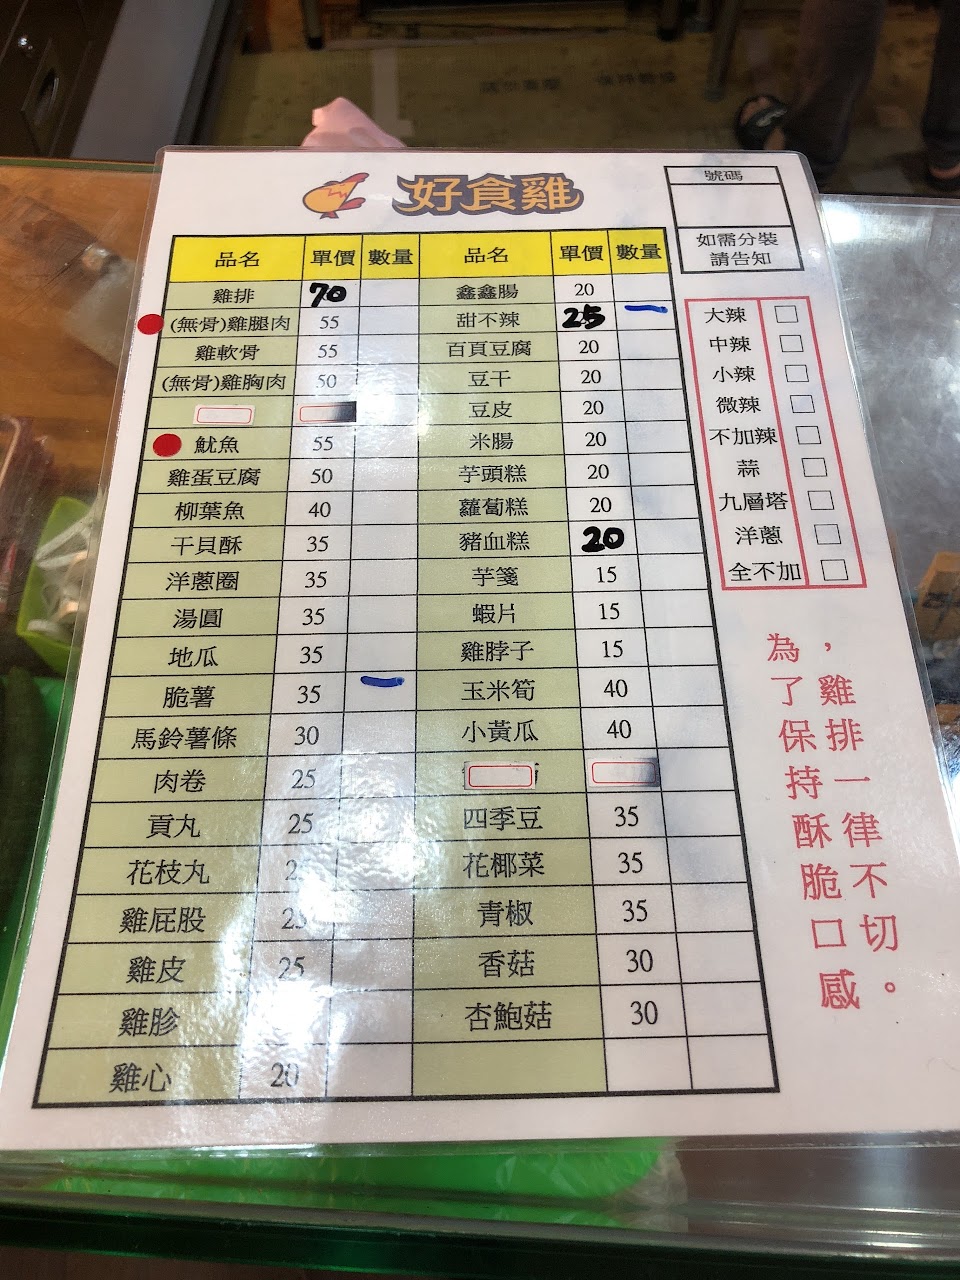 好食雞
號碼
如需分裝
請告知
品名 單價 數量 品名 單價 數量
雞排 70 鑫鑫腸 20
(無骨)雞腿肉 55 甜不辣 25
雞軟骨 55 百頁豆腐 20
(無骨)雞胸肉 50 豆干 20
豆皮 20
魷魚 55 米腸 20
雞蛋豆腐 50 芋頭糕 20
柳葉魚 40 蘿蔔糕 20
干貝酥 35 豬血糕 20
洋蔥圈 35 芋籤 15
湯圓 35 蝦片 15
地瓜 35 雞脖子 15
脆薯 35 玉米筍 40
馬鈴薯條 30 小黃瓜 40
肉卷 25
貢丸 25 四季豆 35
花枝丸 花椰菜 35
雞屁股 25 青椒 35
雞皮 25 香菇 30
雞胗 杏鮑菇 30
雞心 20
大辣
中辣
小辣
微辣
不加辣
蒜
九層塔
洋蔥
全不加
為了保持酥脆口感
，雞排一律不切。